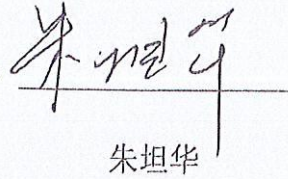 朱坦华
朱坦华